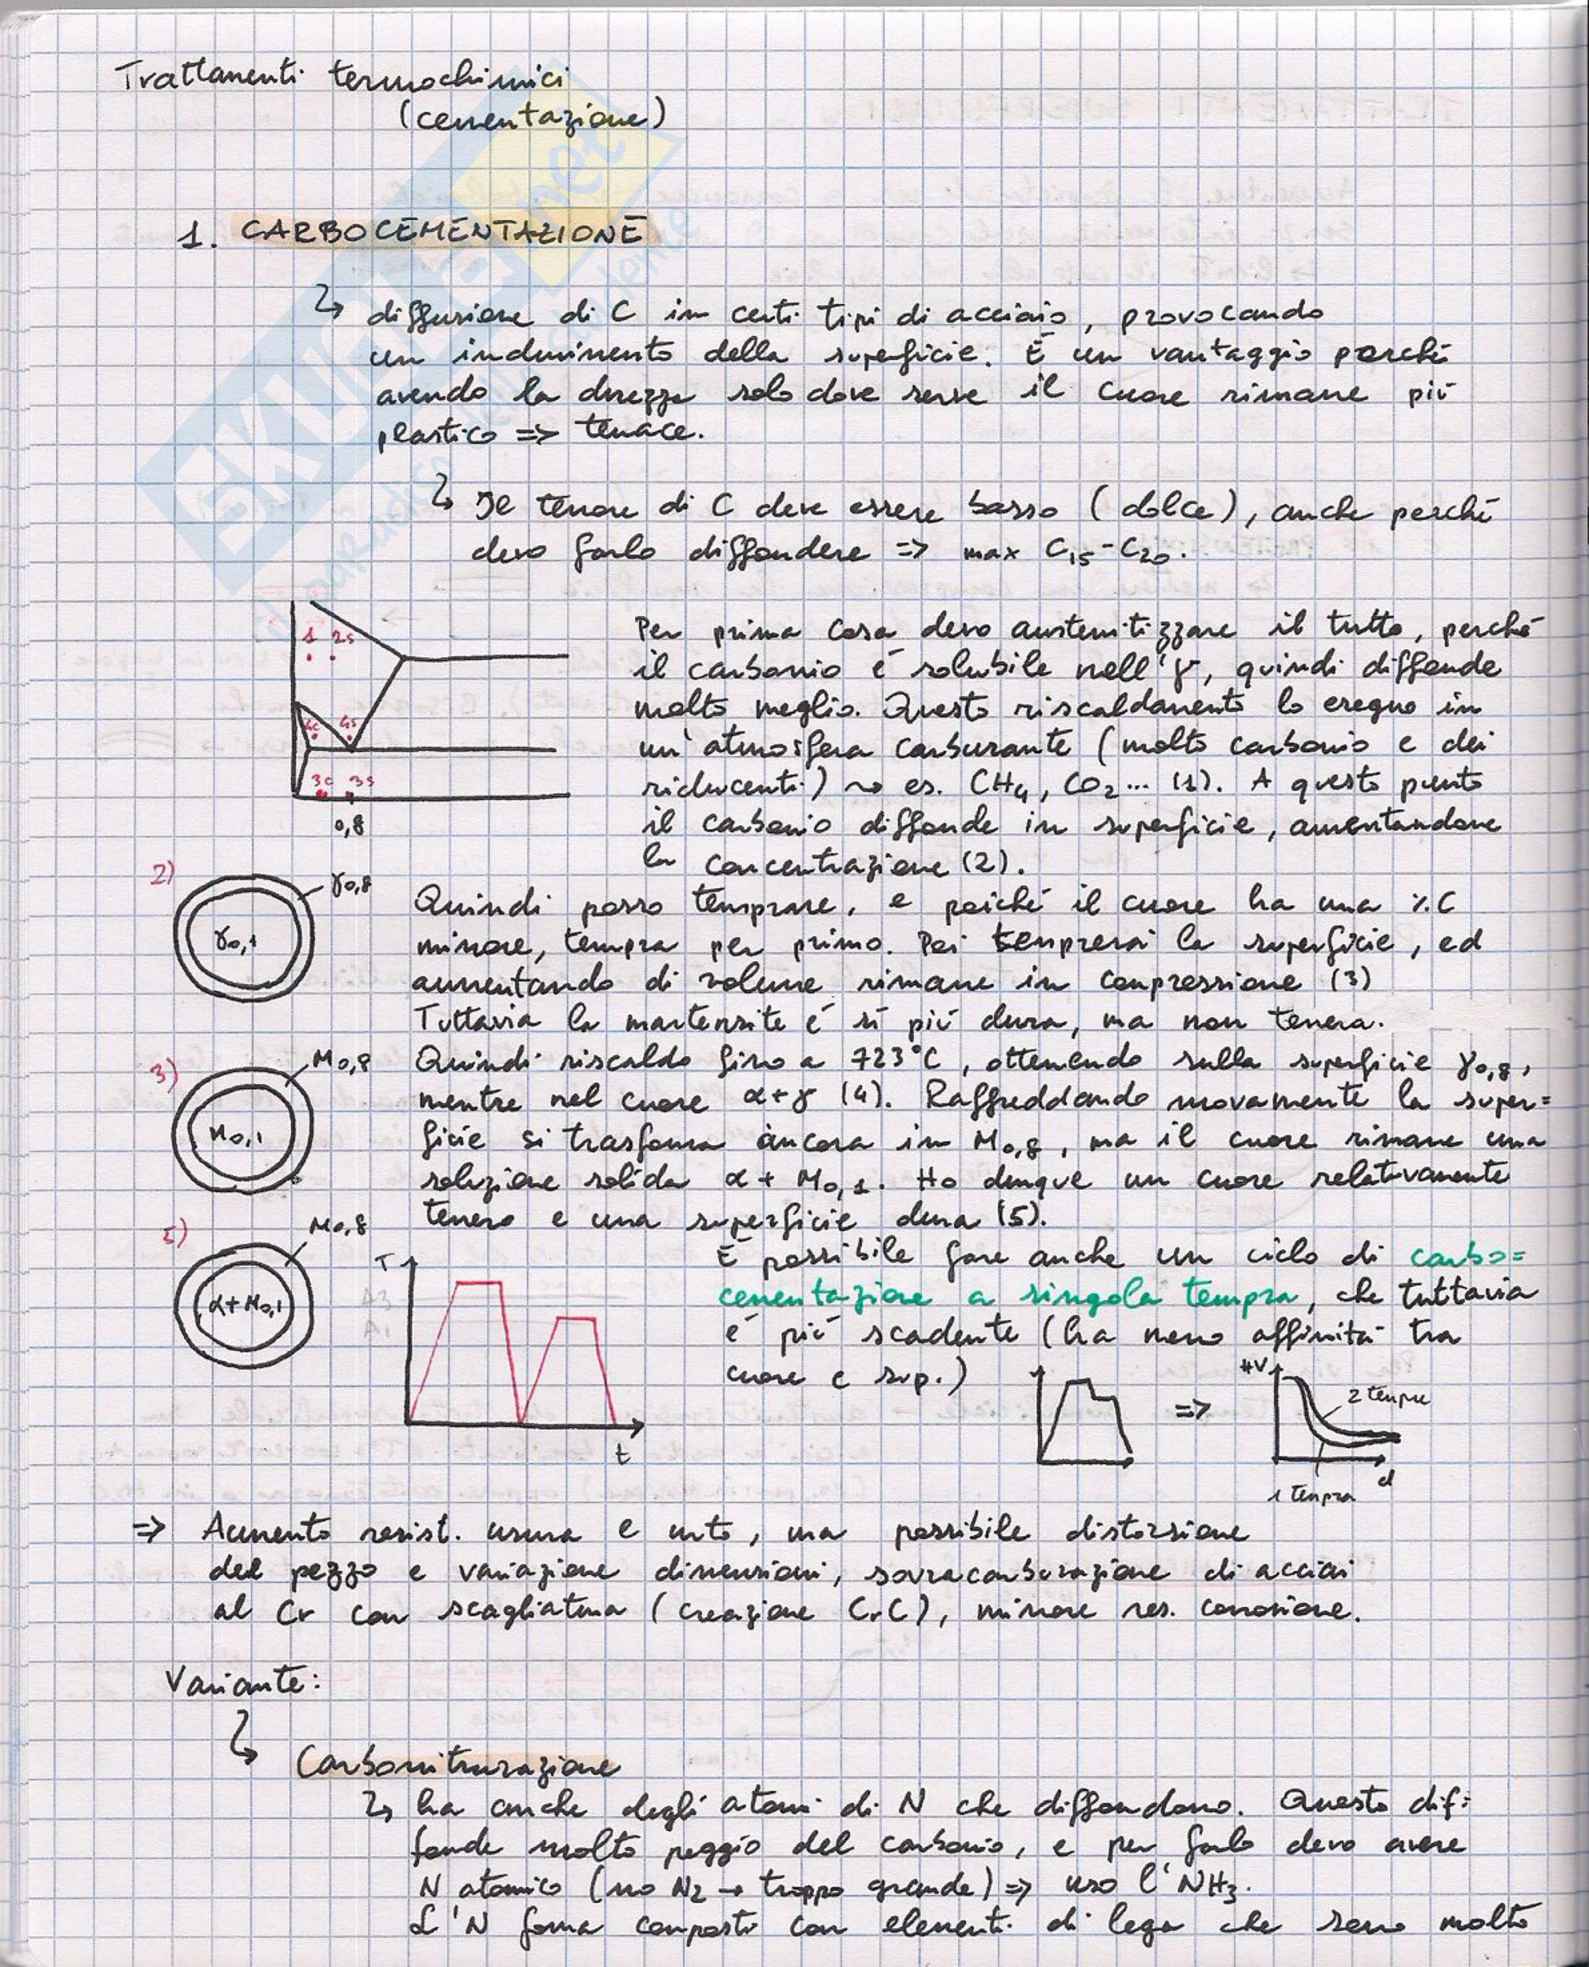 Trattamenti termochimici
(cementazione)
1. CARBOCEMENTAZIONE
↳ diffusione di C in certi tipi di acciaio, provocando
un indurimento della superficie. È un vantaggio perché
avendo la durezza solo dove serve il cuore rimane più
plastico => tenace.
↳ Il tenore di C deve essere basso (dolce), anche perché
devo farlo diffondere => max C15-C20.
1 2s
4c 4s
3c 3s
0,8
Per prima cosa devo austenitizzare il tutto, perché
il carbonio è solubile nell'γ, quindi diffonde
molto meglio. Questo riscaldamento lo eseguo in
un'atmosfera carburante (molto carbonio e dei
riducenti) ~> es. CH4, CO2... (1). A questo punto
il carbonio diffonde in superficie, aumentandone
la concentrazione (2).
2)
γ0,8
γ0,1
Quindi posso temprare, e poiché il cuore ha una %C
minore, tempra per primo. Poi temprerai la superficie, ed
aumentando di volume rimane in compressione (3)
Tuttavia la martensite è sì più dura, ma non tenera.
3)
M0,8
M0,1
Quindi riscaldo fino a 723°C, ottenendo sulla superficie γ0,8,
mentre nel cuore α+γ (4). Raffreddando nuovamente la super=
ficie si trasforma ancora in M0,8, ma il cuore rimane una
soluzione solida α + M0,1. Ho dunque un cuore relativamente
tenero e una superficie dura (5).
5)
M0,8
α+M0,1
T
A3
A1
t
È possibile fare anche un ciclo di carbo=
cementazione a singola tempra, che tuttavia
è più scadente (ha meno affinità tra
cuore e sup.)
=>
HV
2 tempre
d
1 tempra
=> Aumento resist. usura e urto, ma possibile distorsione
del pezzo e variazione dimensioni, sovracarburazione di acciai
al Cr con scagliatura (creazione CrC), minore res. corrosione.
Variante:
↳ Carbonitrurazione
↳ ha anche degli atomi di N che diffondono. Questo dif=
fonde molto peggio del carbonio, e per farlo devo avere
N atomico (no N2 → troppo grande) => uso l'NH3.
L'N forma composti con elementi di lega che sono molto